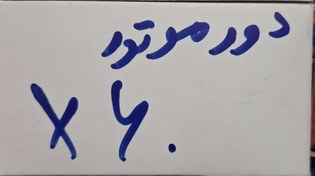 دور موتور
X ۶۰